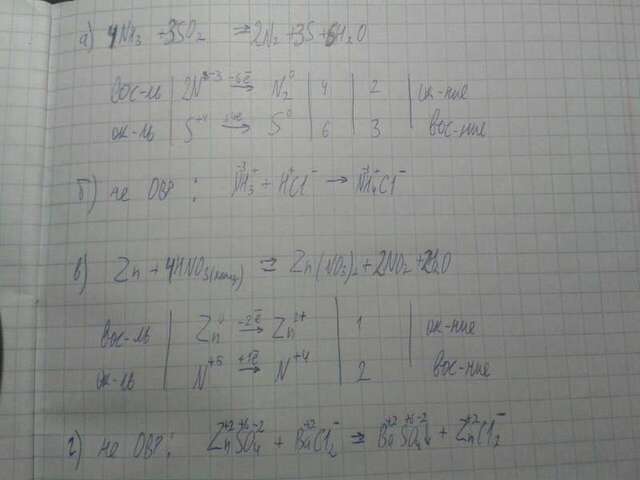 а) 4NH₃ + 3SO₂ = 2N₂ + 3S + 6H₂O
вос-ль | 2N⁻³ –6e̅→ N₂⁰ | 4 | 2 | ок-ние
ок-ль | S⁺⁴ +4e̅→ S⁰ | 6 | 3 | вос-ние
б) не ОВР: N⁻³H₃⁺ + H⁺Cl⁻ → N⁻³H₄⁺Cl⁻
в) Zn + 4HNO₃(конц) = Zn(NO₃)₂ + 2NO₂ + 2H₂O
вос-ль | Zn⁰ –2e̅→ Zn²⁺ | 1 | ок-ние
ок-ль | N⁺⁵ +1e̅→ N⁺⁴ | 2 | вос-ние
г) не ОВР: Zn⁺²S⁺⁶O₄⁻² + Ba⁺²Cl₂⁻ = Ba⁺²S⁺⁶O₄⁻²↓ + Zn⁺²Cl₂⁻